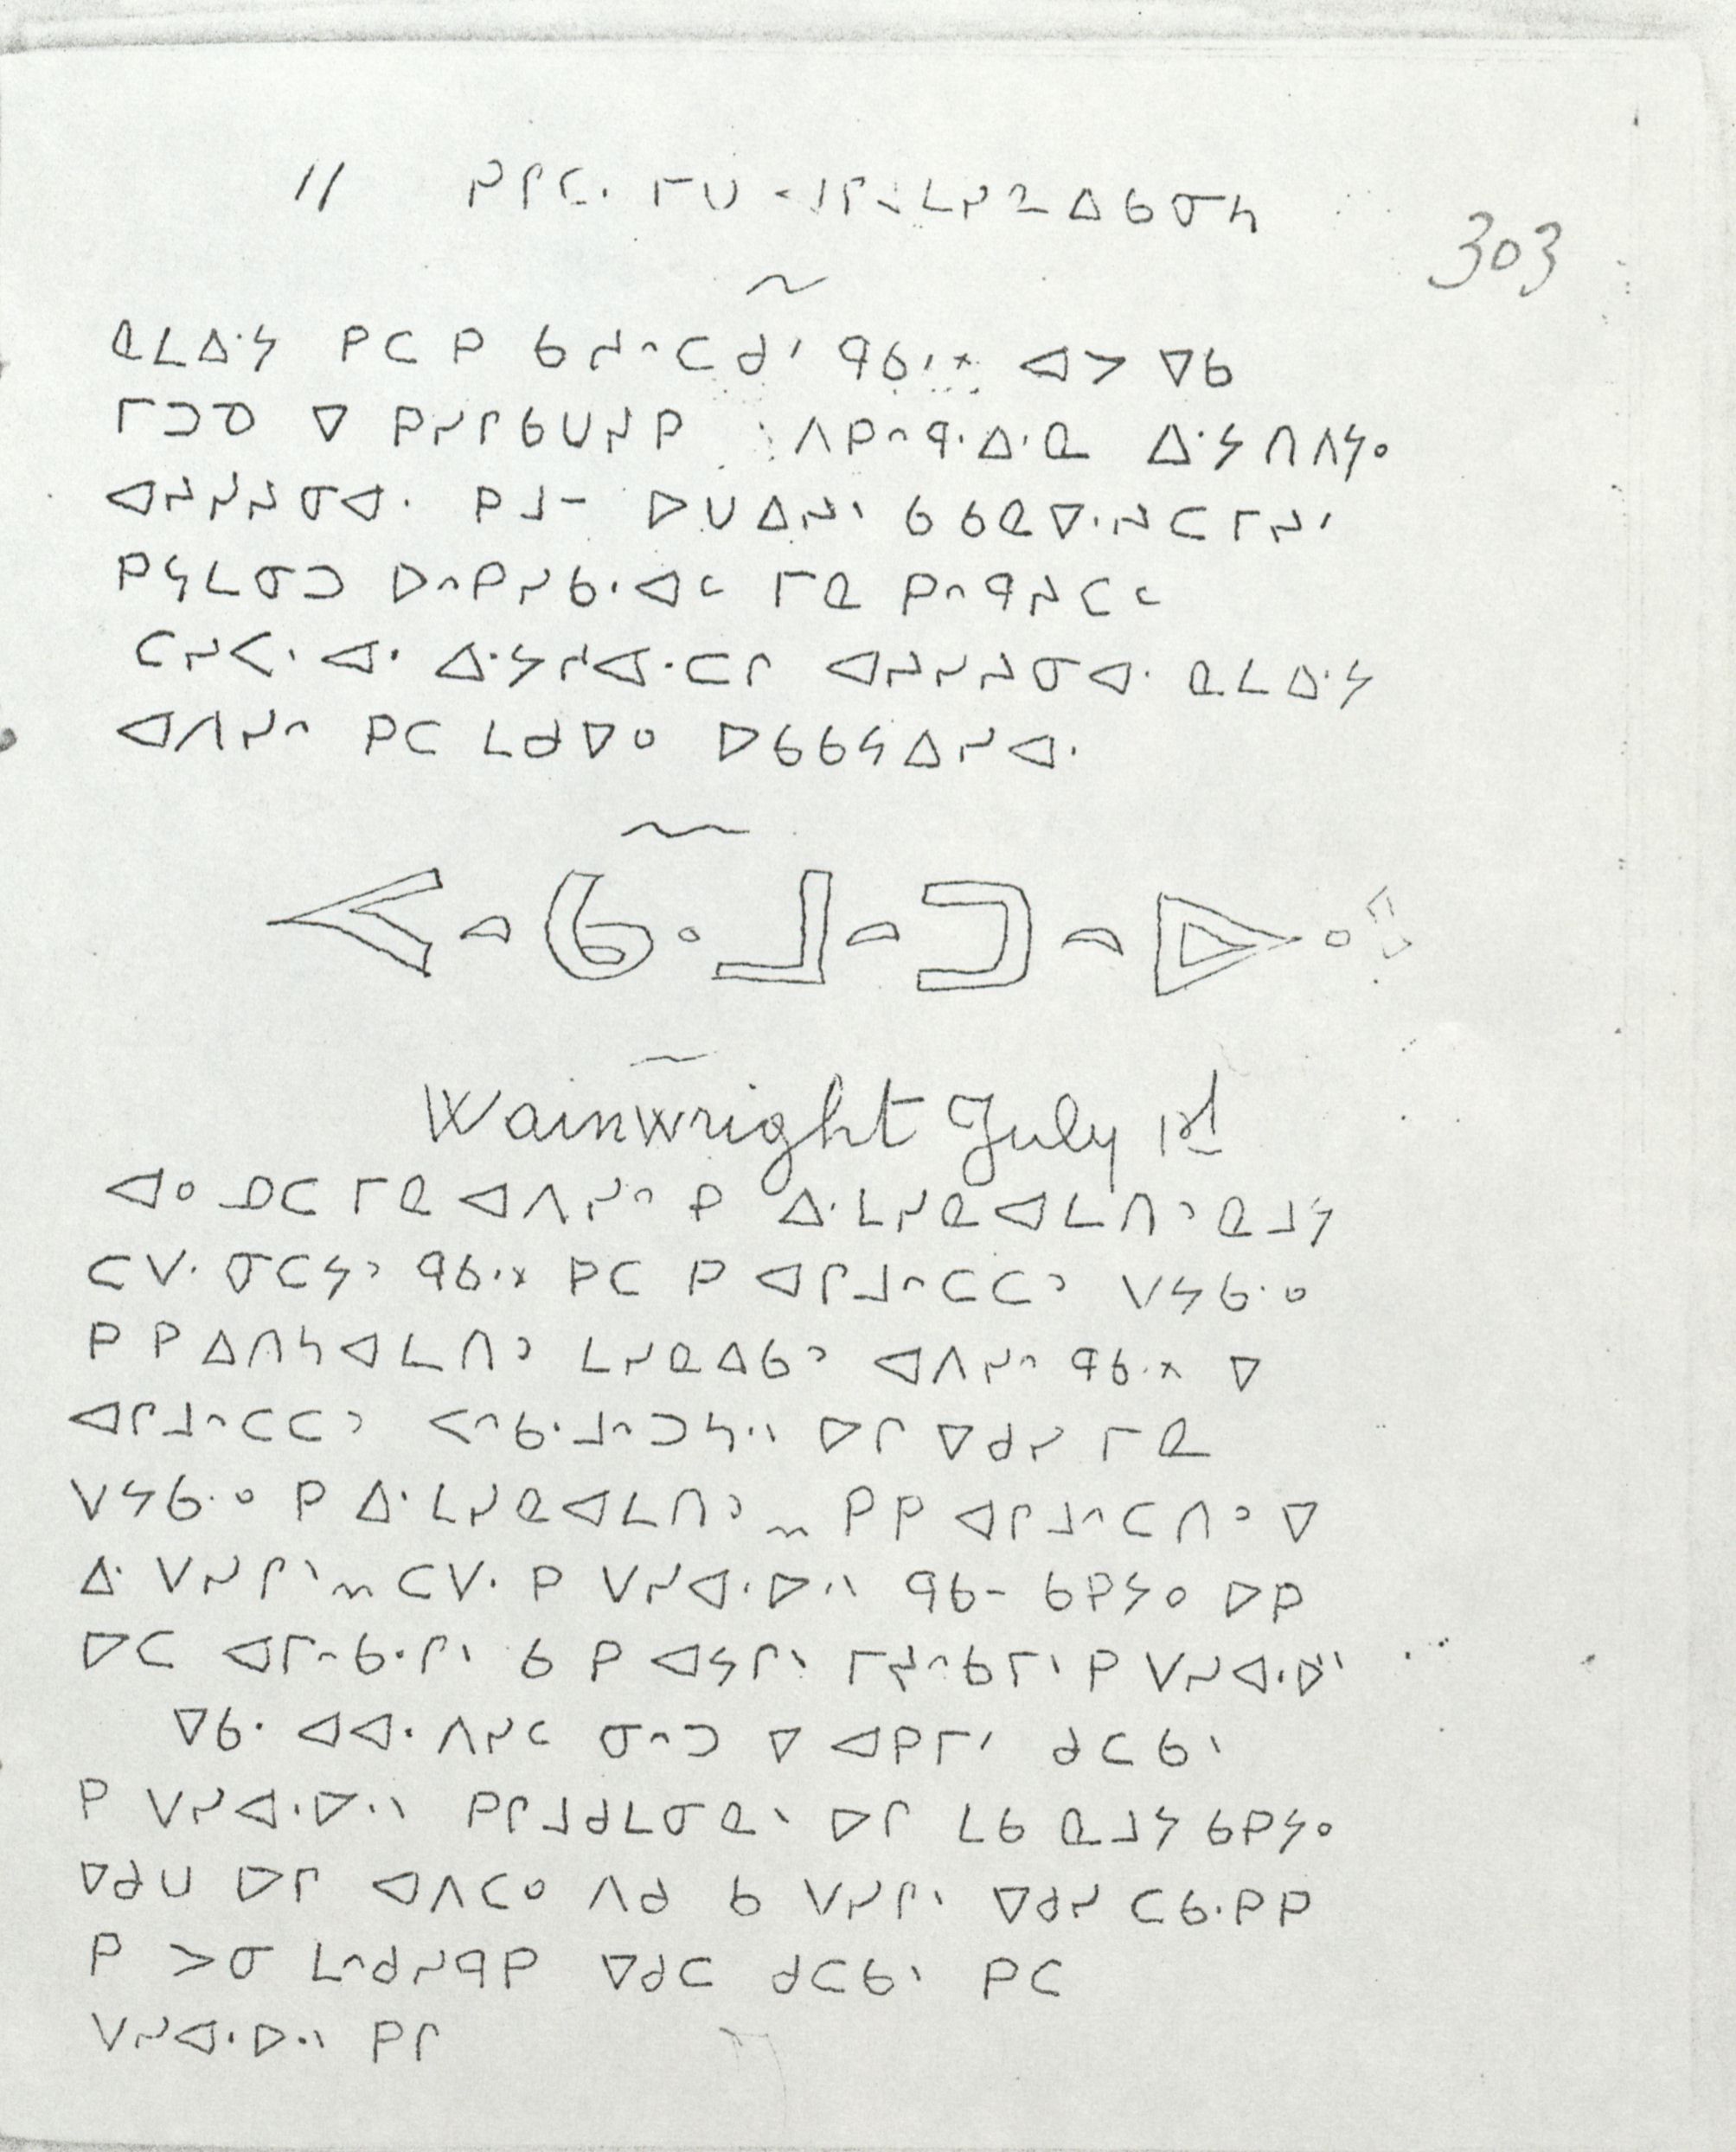 11
303
ᓇᒪᐃᐧᔭ ᑭᑕ ᑭ ᑲᓯᐢᑕᑯᐟ ᑫᑲᐧᕽ ᐊᐳ ᐁᑲ
ᒥᑐᓀ ᐁ ᑭᓯᒋᑲᑌᓯᑭ ᐱᑭᐢᑫᐧᐃᐧᓇ ᐃᐧᔭ ᑎᐱᔭᐤ
ᐊᔨᓯᔨᓂᐊᐧ ᑭᒧᐨ ᐅᑌᐃᓯᐠ ᑲ ᑲᓇᐁᐧᔨᑕᒥᓯᐟ
ᑭᔭᒪᓂᑐ ᐅᐢᑭᓯᑲᐧᐊᑦ ᒥᓇ ᑭᐢᑫᔨᑕᑦ
ᑕᓯᐸᐧ ᐊᐧ ᐃᐧᔭᓯᐊᐧᑕᒋ ᐊᔨᓯᔨᓂᐊᐧ ᓇᒪᐃᐧᔭ
ᐊᐱᓯᐢ ᑭᑕ ᒪᑯᐁᐤ ᐅᑲᑲᔭᐃᓯᐊᐧ
ᐸᐢᑲᐧᒧᐢᑐᐢᐅᐤ
Wainwright July 1st
ᐊᐤ ᓄᑕ ᒥᓇ ᐊᐱᓯᐢ ᑭ ᐃᐧᒪᓯᓇᐊᒪᑎᐣ ᓇᒧᔭ
ᑕᐯᐧ ᓂᑕᔭᐣ ᑫᑲᐧᕽ ᑭᑕ ᑭ ᐊᒋᒧᐢᑕᑕᐣ ᐯᔭᑲᐧᐤ
ᑭ ᑭ ᐃᑎᓴᐊᒪᑎᐣ ᒪᓯᓇᐃᑲᐣ ᐊᐱᓯᐢ ᑫᑲᐧᕽ ᐁ
ᐊᒋᒧᐢᑕᑕᐣ ᐸᐢᑲᐧᒧᐢᑐᓴᐧᐠ ᐅᒋ ᐁᑯᓯ ᒥᓇ
ᐯᔭᑲᐧᐤ ᑭ ᐃᐧᒪᓯᓇᐊᒪᑎᐣ ᑭᑭ ᐊᒋᒧᐢᑕᑎᐣ ᐁ
ᐃᐧ ᐯᓯᒋᐠ ᑕᐯᐧ ᑭ ᐯᓯᐊᐧᐅᐧᐠ ᑫᑲᐨ ᑲᑭᔭᐤ ᐅᑭ
ᐅᑕ ᐊᒥᐢᑲᐧᒋᐠ ᑲ ᑭ ᐊᔭᒋᐠ ᒥᔪᐢᑲᒥᐠ ᑭ ᐯᓯᐊᐧᐅᐧᐠ
ᐁᑲᐧ ᐊᐊᐧᐱᓯᑦ ᓂᐢᑐ ᐁ ᐊᑭᒥᐟ ᑯᑕᑲᐠ
ᑭ ᐯᓯᐊᐧᐅᐧᐠ ᑭᒋᒧᑯᒪᓂᓇᐠ ᐅᒋ ᒪᑲ ᓇᒧᔭ ᑲᑭᔭᐤ
ᐁᑯᑌ ᐅᒋ ᐊᐱᑕᐤ ᐱᑯ ᑲ ᐯᓯᒋᐠ ᐁᑯᓯ ᑕᑲᐧᑭᑭ
ᑭ ᐳᓂ ᒪᐢᑯᓯᑫᑭ ᐁᑯᑕ ᑯᑕᑲᐠ ᑭᑕ
ᐯᓯᐊᐧᐅᐧᐠ ᑭᒋ